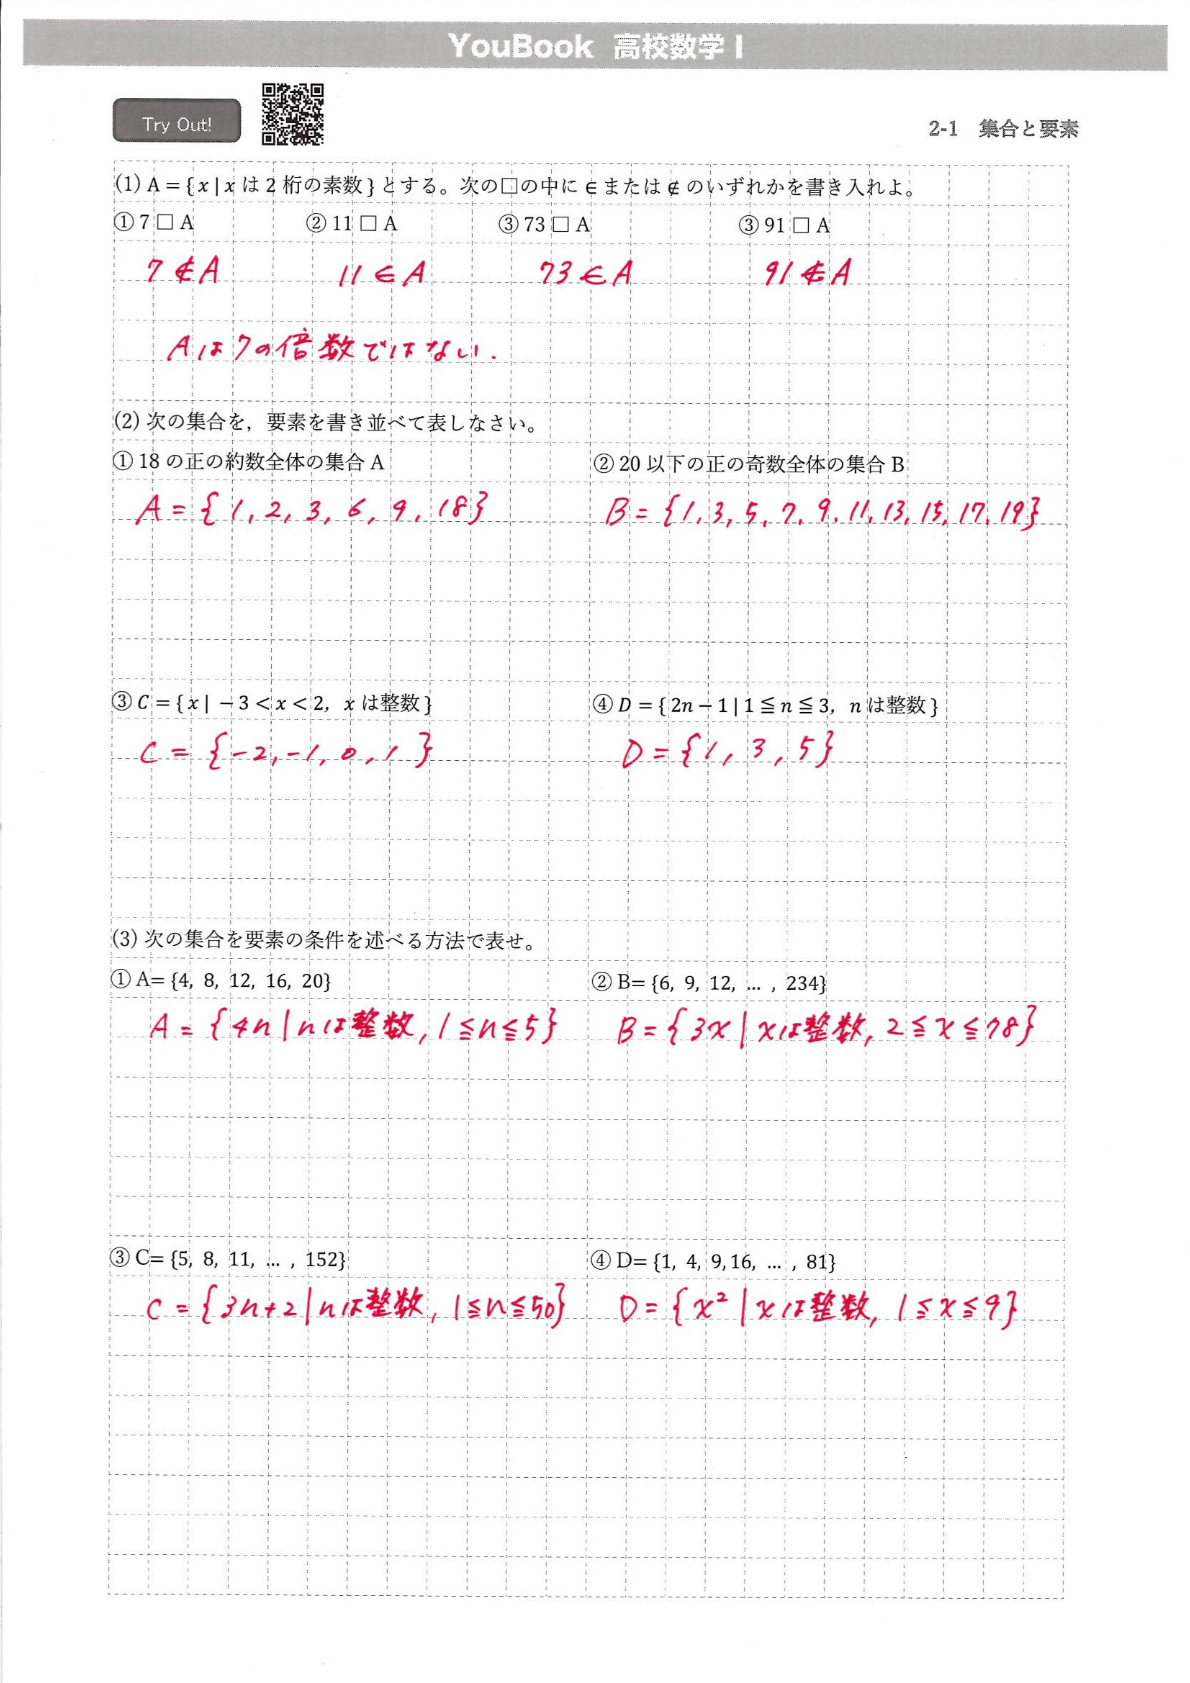 YouBook 高校数学 I
Try Out!
2-1 集合と要素
(1) A = { x | x は 2 桁の素数 } とする。次の□の中に ∈ または ∉ のいずれかを書き入れよ。
① 7 □ A ② 11 □ A ③ 73 □ A ③ 91 □ A
7 ∉ A 11 ∈ A 73 ∈ A 91 ∉ A
Aは7の倍数ではない.
(2) 次の集合を，要素を書き並べて表しなさい。
① 18 の正の約数全体の集合 A ② 20 以下の正の奇数全体の集合 B
A = {1, 2, 3, 6, 9, 18} B = {1, 3, 5, 7, 9, 11, 13, 15, 17, 19}
③ C = { x | −3 < x < 2, x は整数 } ④ D = { 2n − 1 | 1 ≦ n ≦ 3, n は整数 }
C = {-2, -1, 0, 1} D = {1, 3, 5}
(3) 次の集合を要素の条件を述べる方法で表せ。
① A= {4, 8, 12, 16, 20} ② B= {6, 9, 12, … , 234}
A = {4n | nは整数, 1≦n≦5} B = {3x | xは整数, 2≦x≦78}
③ C= {5, 8, 11, … , 152} ④ D= {1, 4, 9,16, … , 81}
C = {3n+2 | nは整数, 1≦n≦50} D = {x² | xは整数, 1≦x≦9}